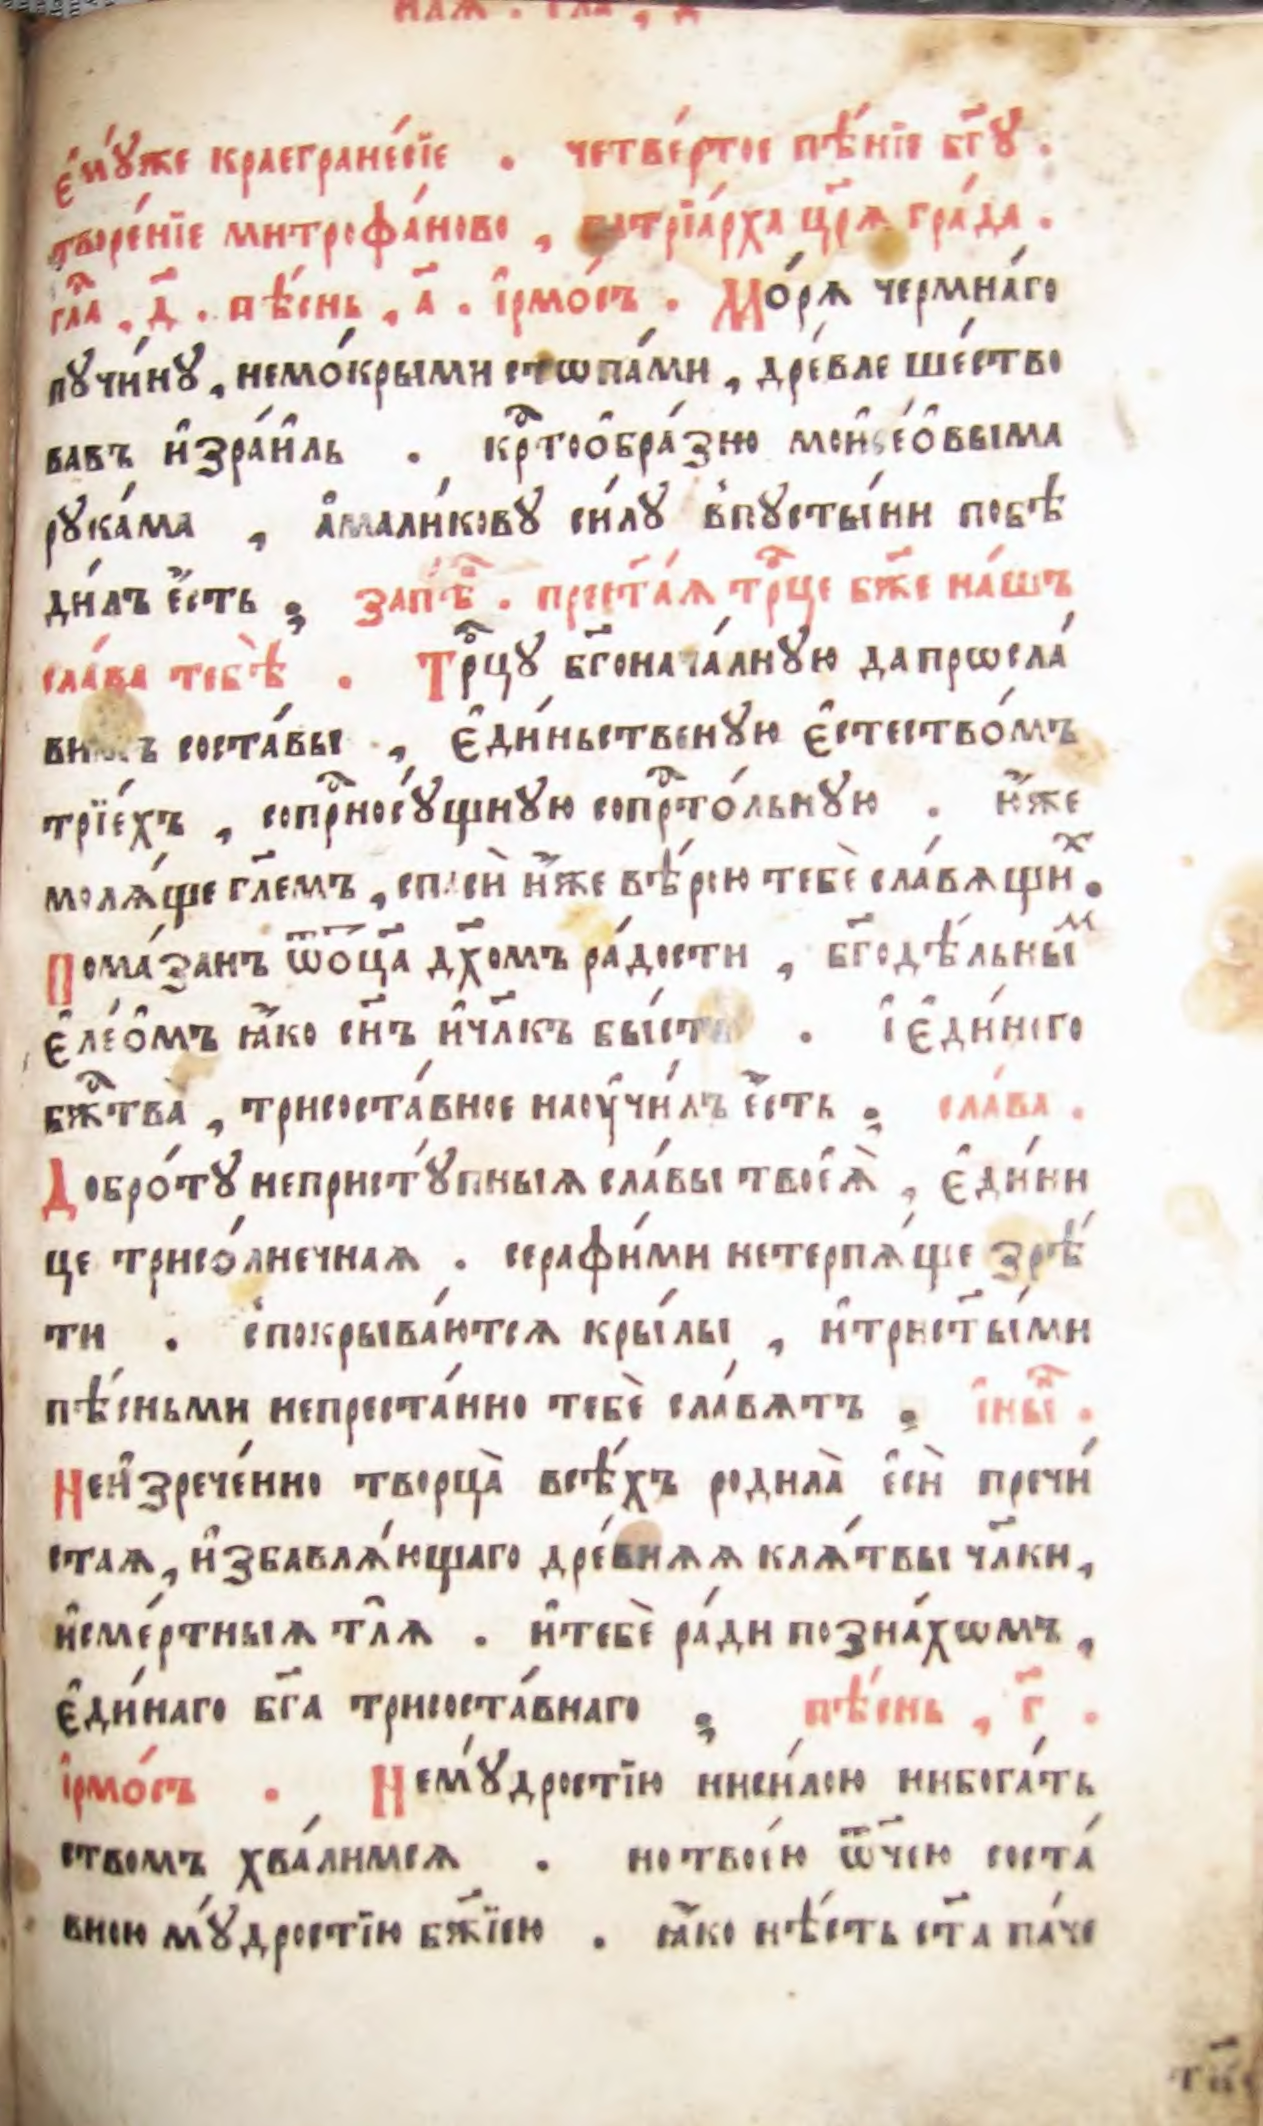 наѧ . гла , д
є҆мꙋ́же краегране́сїе . четве́ртое пѣ́нїе бг҃ꙋ .
творе́нїе митрофа́ново , патрїа́рха цр҃ѧ гра́да .
гла҃ , д҃ . пѣ́снь , а҃ . і҆рмо́съ . Мо́рѧ чермна́го
пꙋчи́нꙋ , немо́крыми стѡпа́ми , дре́вле ше́ство
вавъ и҆зра́и҆ль . крⷭ҇тоо҆бра́зно мои҆сео́выма
рꙋка́ма , а҆мали́ковꙋ си́лꙋ впꙋсты́ни побѣ
ди́лъ є҆́сть ; запѣⷡ҇ . прест҃а́ѧ трⷪ҇це бж҃е на́шъ
сла́ва тебѣ̀ . Трⷪ҇цꙋ бг҃онача́лнꙋю да прѡсла́
вимъ соста́вы , є҆ди́ньственꙋю є҆стество́мъ
трїе́хъ , сопрⷭ҇носꙋ́щнꙋю сопрⷭ҇то́льнꙋю . и҆́же
молѧ́ще гл҃емъ , спаси̂ и҆̀же вѣ́рою тебѐ сла́вѧщиⷯ .
Пома́занъ ѿо҆ц҃а дх҃омъ ра́дости , бг҃одѣ́льныⷨ
є҆ле́о҆мъ ꙗ҆́ко сн҃ъ и҆чл҃къ бы́сть . і҆ є҆ди́ного
бжⷭ҇тва̀ , трисоста́вное наоу҆чи́лъ є҆́сть ; сла́ва .
Добро́тꙋ непристꙋ́пныѧ сла́вы твоеѧ̀ , є҆ди́ни
це трисо́лнечнаѧ . серафи́ми нетерпѧ́ще зрѣ́
ти . спокрыва́ютсѧ кры́лы , и҆трист҃ы́ми
пѣ́сньми непреста́нно тебѐ сла́вѧтъ . і҆ныⷩ҇ .
Неи҆зрече́нно творца̀ всѣ́хъ родила̀ є҆сѝ пречи́
стаѧ , и҆збавлѧ́ющаго дре́внѧѧ клѧ́твы чл҃ки ,
и҆сме́ртныѧ тлѧ̂ . и҆тебѐ ра́ди позна́хѡмъ ,
є҆ди́наго бг҃а трисоста́внаго ; пѣ́снь , г҃ .
і҆рмо́съ . Немꙋ́дростїю ниси́лою нибога́ть
ствомъ хва́лимсѧ . но твое́ю ѿ҃чею соста́
вною мꙋ́дростїю бж҃їею . ꙗ҆́ко нѣ́сть ст҃а па́че